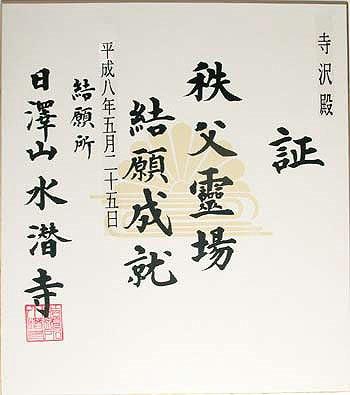 寺沢殿
証
秩父靈場
結願成就
平成八年五月二十五日
結願所
日澤山水潜寺